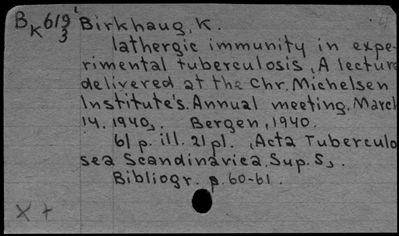 BK619' Birkhaug, K.
3
lathergic immunity in expe-
rimental tuberculosis, A lecture
delivered at the Chr. Michelsen
Institute's. Annual meeting. March
14. 1940,. Bergen, 1940.
61 p. ill. 21 pl. (Acta Tuberculo
sea Scandinavica. Sup. 5).
Bibliogr. p. 60-61.
X +